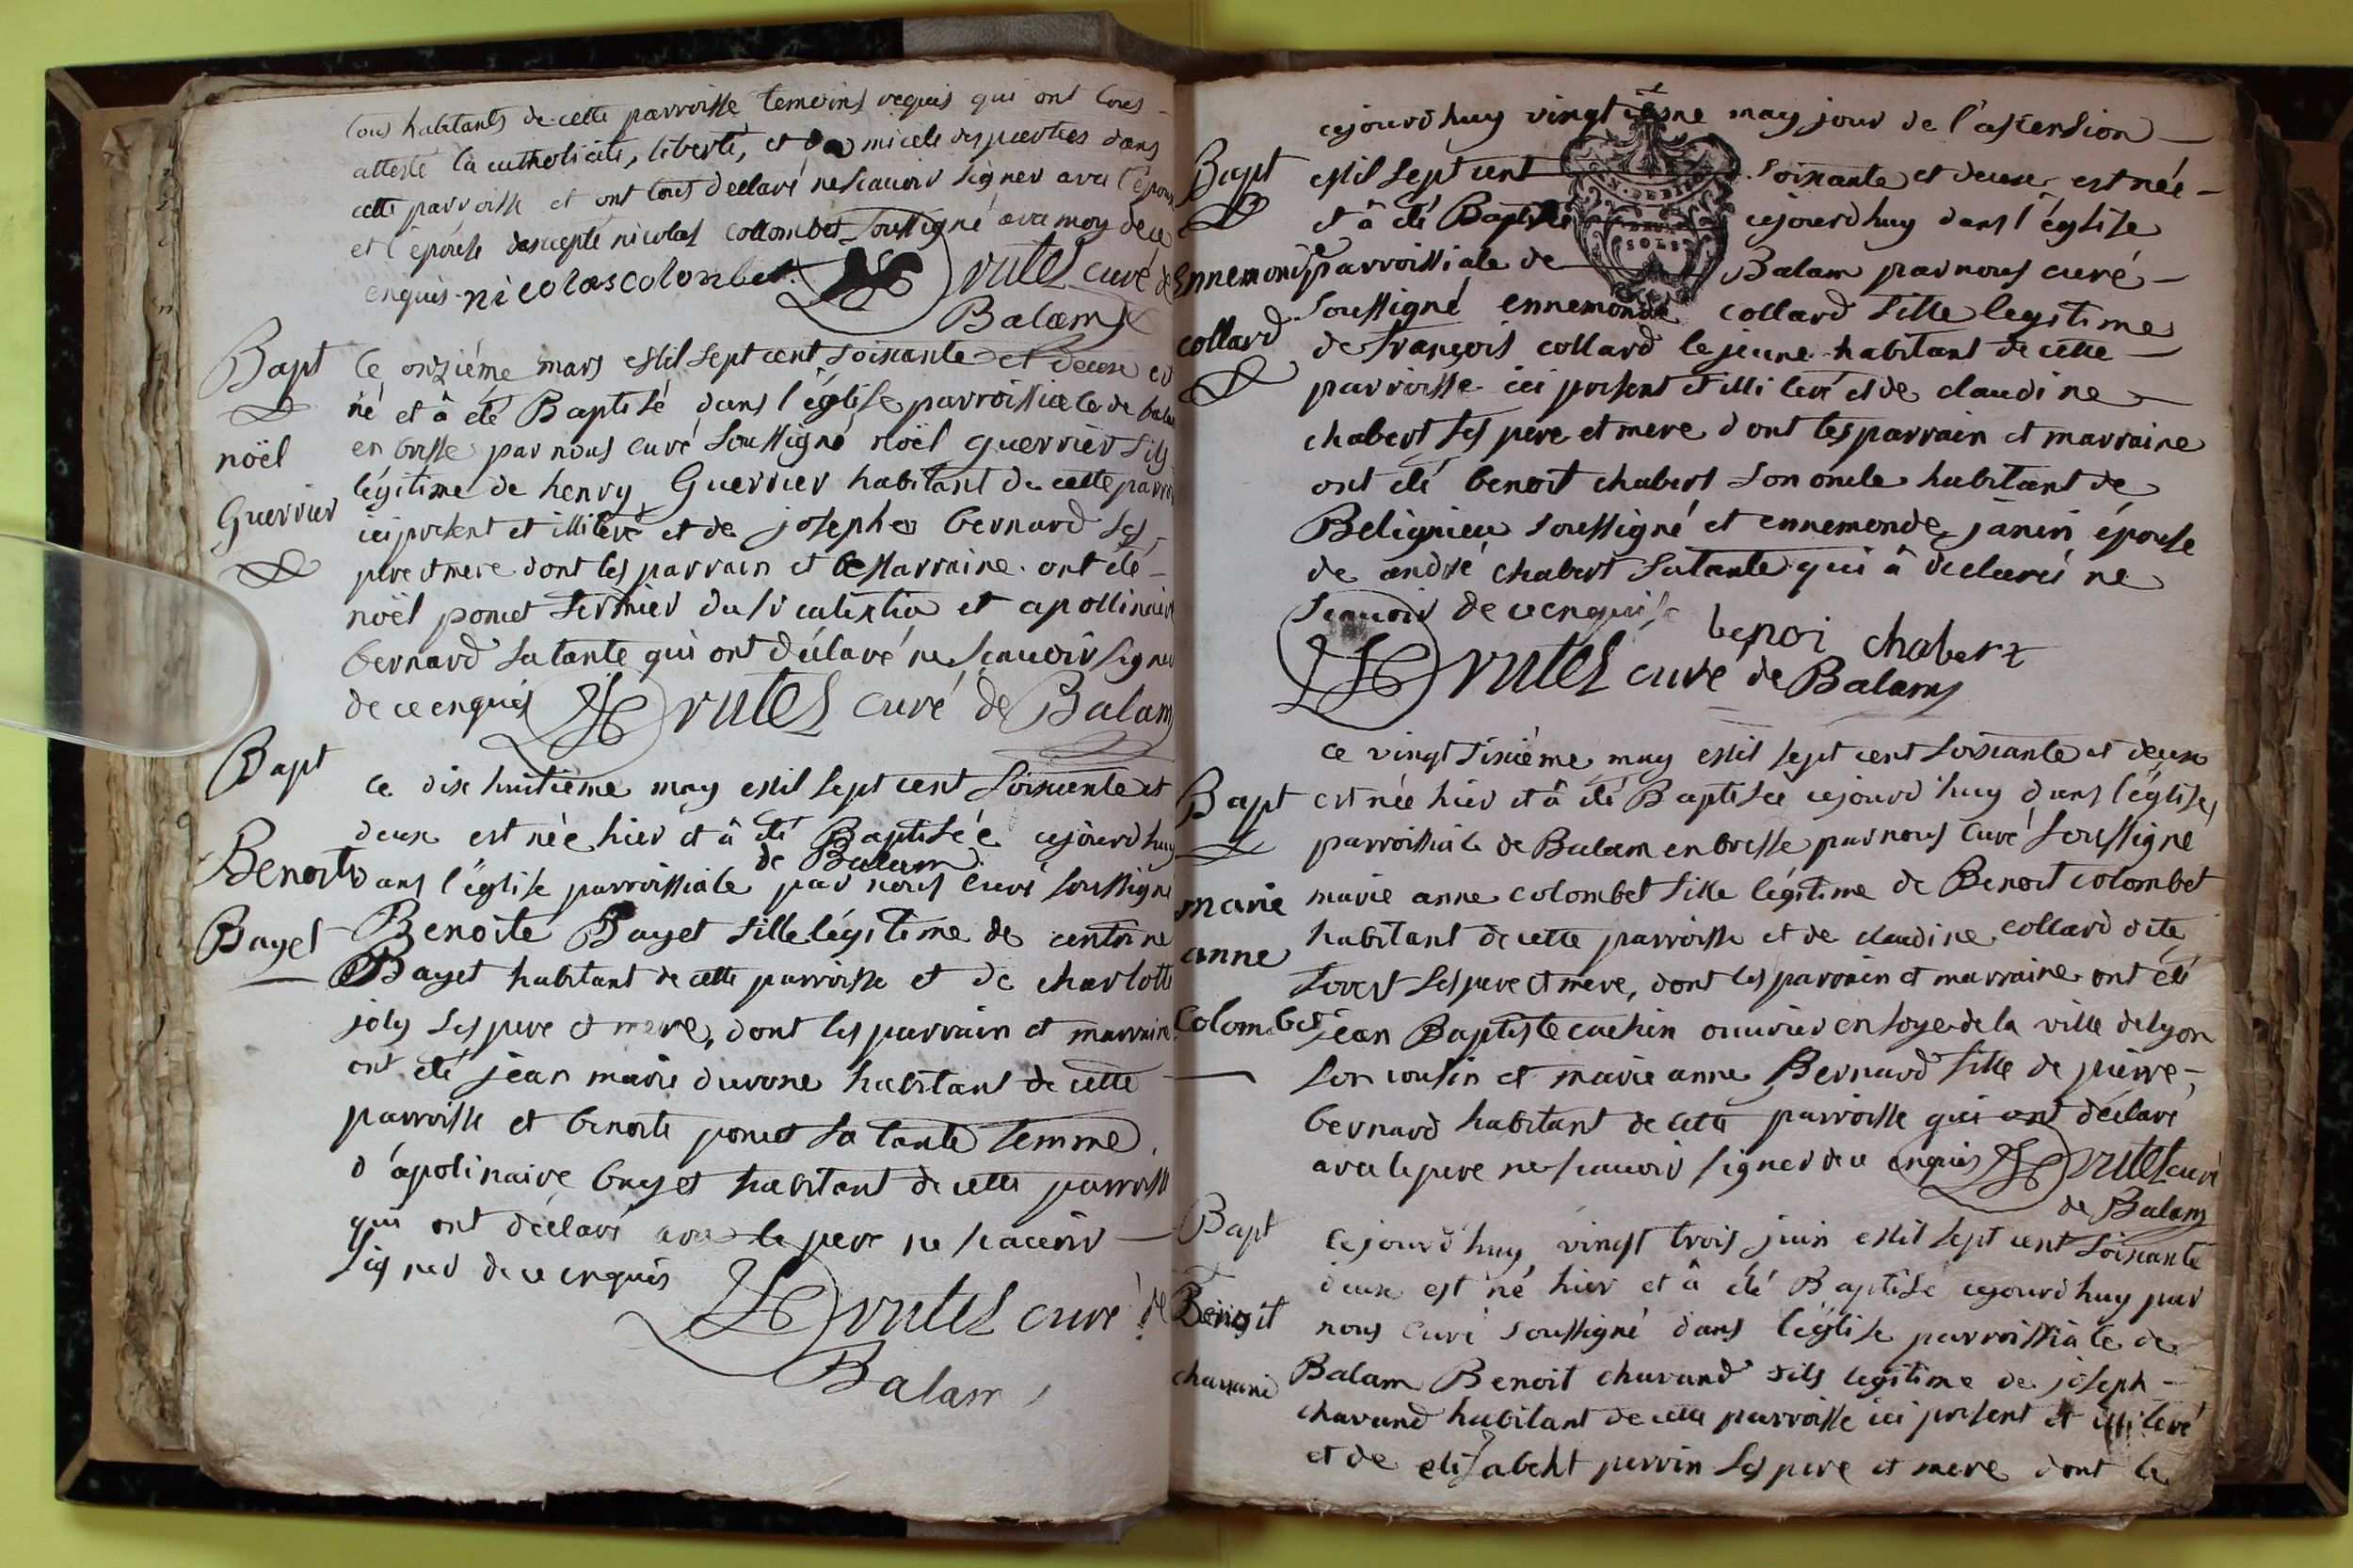 tous habitants de cette parroisse temoins requis qui ont tous
atteste la catholicité, liberté, et domicile des parties dans
cette parroisse et ont tous declaré ne scavoir signer avec l'époux
et l'épouse excepté nicolas collombet soussigné avec moy de ce
enquis nicolas colonbet Drutel curé de
Balam
Bapt
noël
Guerrier
le onziéme mars mil sept cent soixante et deux est
né et à été Baptisé dans l'église parroissiale de bala
en bresse par nous curé soussigné noël guerrier fils
légitime de henry Guerrier habitant de cette parroi
ici présent et illiteré et de josephe bernard ses
pere et mere dont les parrain et Marraine ont été
noël poncet fermier du sr et apollinaire
bernard sa tante qui ont déclaré ne scavoir signer
de ce enquis Drutel curé de Balam
Bapt
Benoite
Bayet
ce dix huitieme may mil sept cent soixante et
deux est née hier et à été Baptisée cejourd huy
de Balam
dans l'église parroissiale par nous curé soussigné
Benoite Bayet fille légitime de antoine
Bayet habitant de cette parroisse et de charlotte
joly ses pere et mere, dont les parrain et marraine
ont été jean marie durone habitant de cette
parroisse et benoite poncet sa tante femme
d'apolinaire bayet habitant de cette parroisse
qui ont déclaré avec le pere ne scavoir
signer de ce enquis
Drutel curé de
Balam
Bapt
Ennemonde
collard
cejourd huy vingtiesme may jour de l'ascension
mil sept cent soixante et deux est née
et à été Baptisée cejourd huy dans l'église
parroissiale de Balam par nous curé
soussigné ennemonde collard fille legitime
de françois collard le jeune habitant de cette
parroisse ici present et illiteré et de claudine
chabert ses pere et mere dont les parrain et marraine
ont été benoit chabert son oncle habitant de
Belignieu soussigné et ennemonde janin épouse
de andré chabert sa tante qui à declaré ne
scavoir de ce enquise benoi chabert
Drutel curé de Balam
SOLS
Bapt
marie
anne
Colombet
ce vingt sixiéme may mil sept cent soixante et deux
est née hier et à été Baptisée cejourd'huy dans l'église
parroissiale de Balam en bresse par nous curé soussigné
marie anne colombet fille légitime de Benoit colombet
habitant de cette parroisse et de claudine collard dite
ses pere et mere, dont les parrain et marraine ont été
jean Baptiste cachin ouvrier en soye de la ville de lyon
son cousin et marie anne Bernard fille de pierre
bernard habitant de cette parroisse qui ont déclaré
avec le pere ne scavoir signer de ce enquis Drutel curé
de Balam
Bapt
Benoit
chavand
cejourd'huy vingt trois juin mil sept cent soixante
deux est né hier et à été Baptisé cejourd huy par
nous curé soussigné dans l'église parroissiale de
Balam Benoit chavand fils legitime de joseph
chavand habitant de cette parroisse ici présent et illiteré
et de elisabeht perrin ses pere et mere dont le